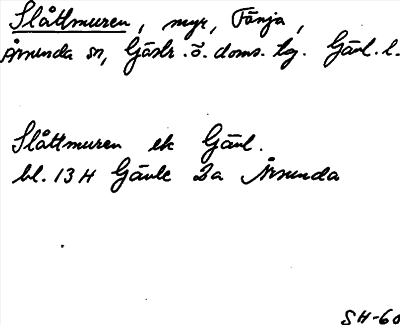 Slåttmuren, myr, Fänja,
Årsunda sn, Gästr. ö. doms. lg. Gävl. l.
Slåttmuren ek Gävl.
bl. 13 H Gävle 2a Årsunda
SH-60